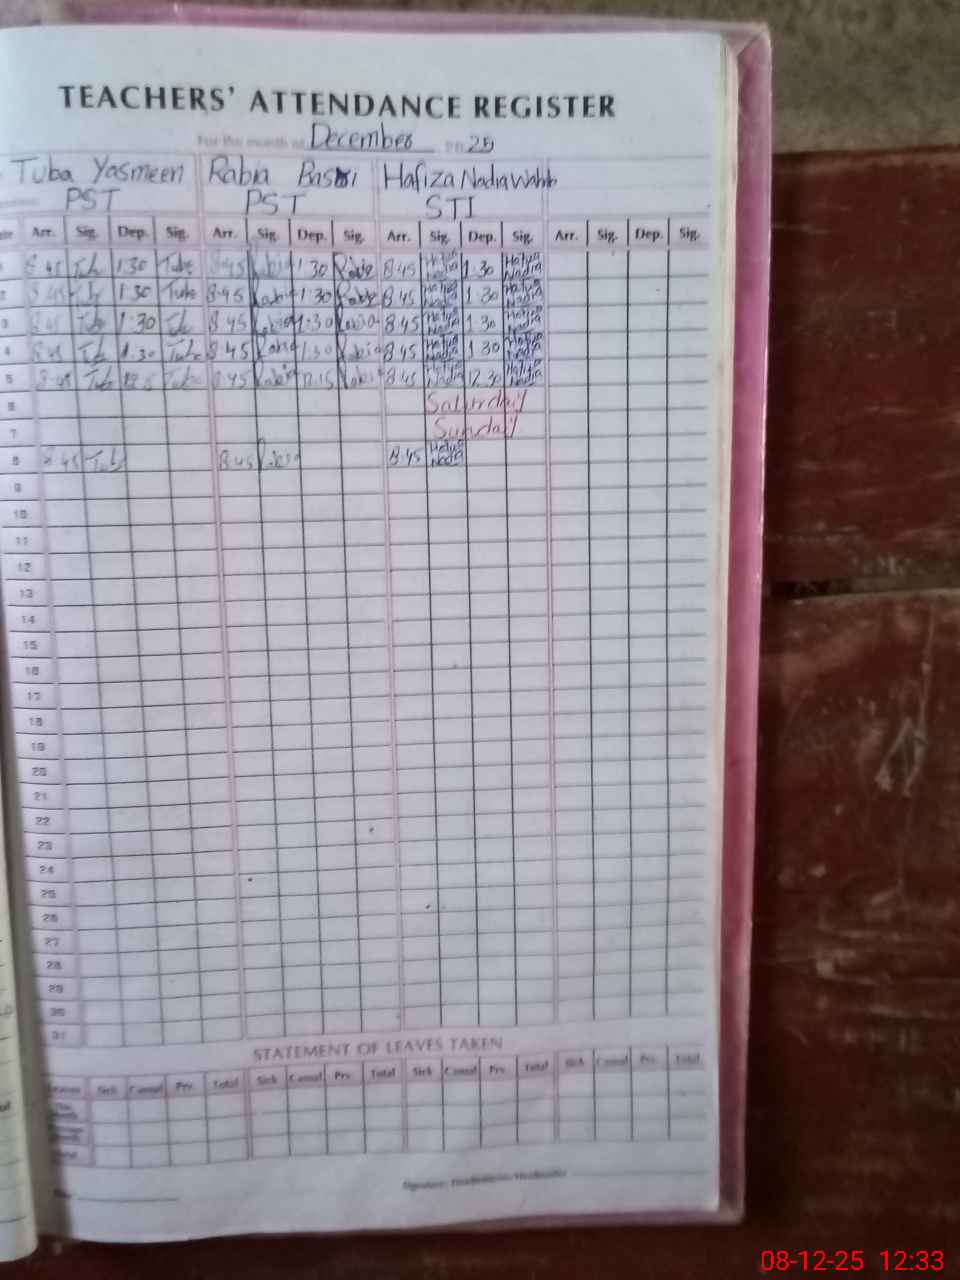 TEACHERS' ATTENDANCE REGISTER
For the month of December 25
Tuba Yasmeen Rabia Hafiza Nadia Wahib
PST PST STI
Arr. Sig. Dep. Sig. Arr. Sig. Dep. Sig. Arr. Sig. Dep. Sig. Arr. Sig. Dep. Sig.
8 45 1:30 Tuba 8:45 1:30 Rabia 8:45 Hafiza Nadia 1:30 Hafiza Nadia
2 8 45 1:30 Tuba 8:45 Rabia 1:30 Rabia 8:45 Hafiza Nadia 1:30 Hafiza Nadia
3 8 45 Tuba 1:30 8 45 Rabia 1:30 Rabia 8:45 Hafiza Nadia 1:30 Hafiza Nadia
4 8 45 1:30 Tuba 8 45 Rabia 1:30 Rabia 8:45 Hafiza Nadia 1 30 Hafiza Nadia
5 8:45 Tuba Tuba 8:45 Rabia 12:15 Rabia 8:45 Hafiza Nadia 12.30 Hafiza Nadia
6 Saturday
7 Sunday
8 8 45 Tuba 8:45 Rabia 8:45 Hafiza Nadia
9
10
11
12
13
14
15
16
17
18
19
20
21
22
23
24
25
26
27
28
29
30
31
STATEMENT OF LEAVES TAKEN
Leaves Sick Casual Prv. Total Sick Casual Prv. Total Sick Casual Prv. Total Sick Casual Prv. Total
Signature: Headmistress/Headmaster
08-12-25 12:33